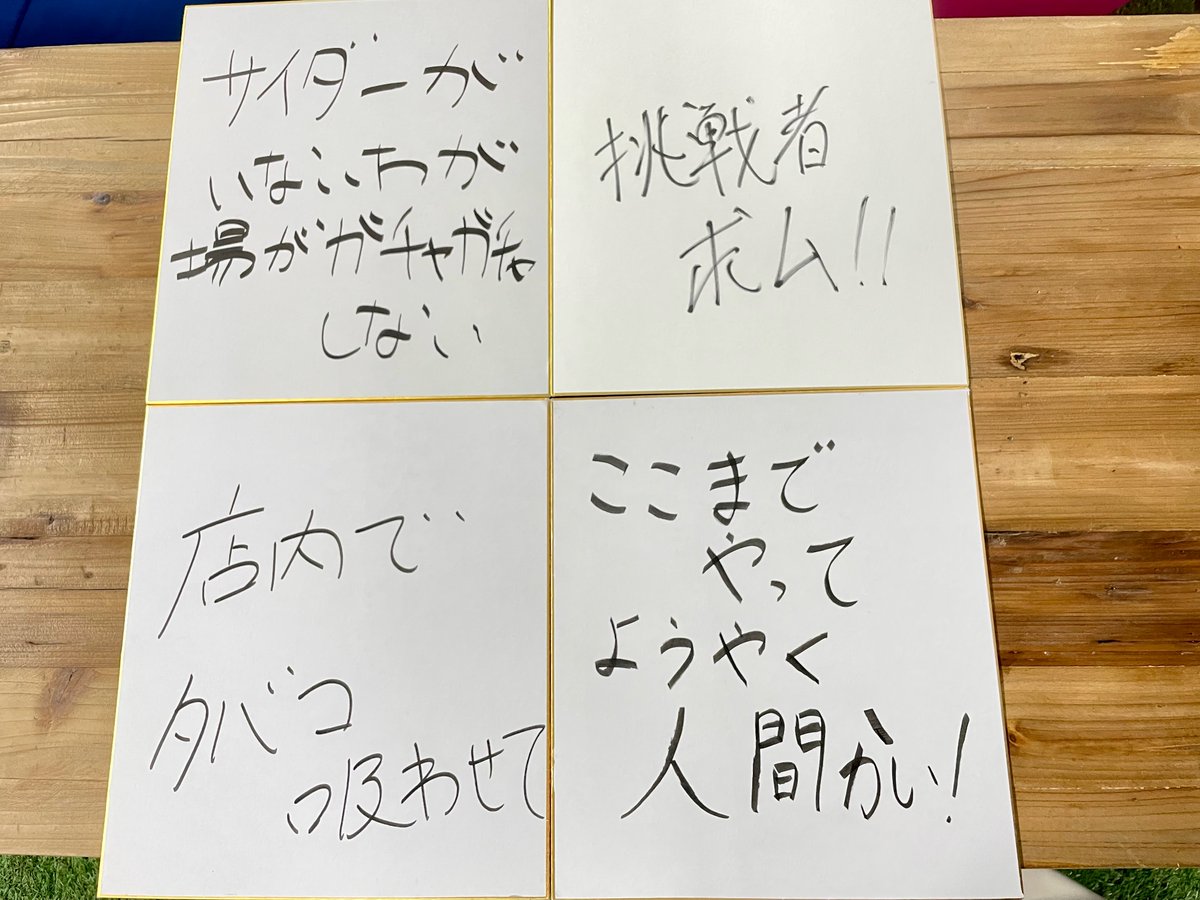 サイダーが
いないわが
場がガチャガチャ
しない
挑戦者
求ム!!
店内で
タバコ
吸わせて
ここまで
やって
ようやく
人間かい!